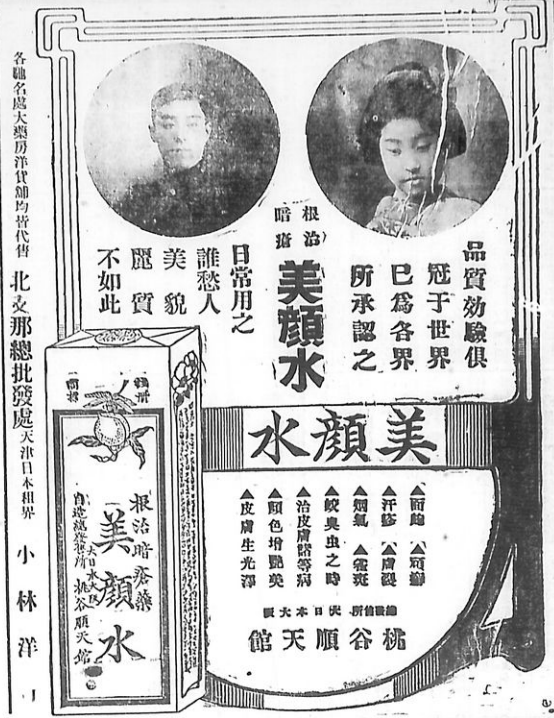 品質効驗俱
冠于世界
已爲各界
所承認之
根治
暗瘡
美顔水
日常用之
誰愁人
美貌
麗質
不如此
美顏水
▲面皰 ▲頑癬
▲汗疹 ▲膚裂
▲烟氣 ▲雀斑
▲蚊臭虫之時
▲治皮膚諸等病
▲顏色增艷美
▲皮膚生光澤
大日本大阪
桃谷順天館
根治暗瘡藥
美顏水
大日本大阪
桃谷順天館
各馳名處大藥房洋貨舖均皆代售
北支那總批發處 天津日本租界 小林洋